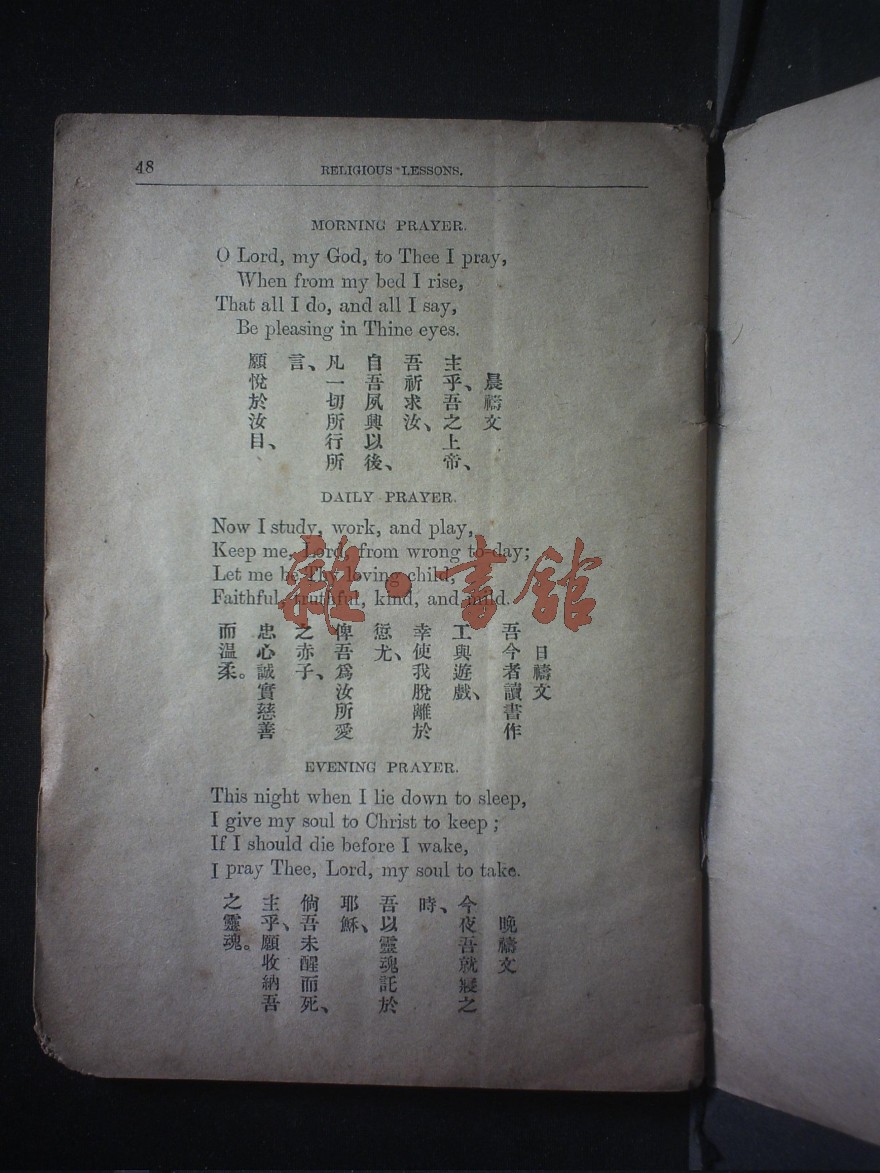 48
RELIGIOUS LESSONS.
MORNING PRAYER.
O Lord, my God, to Thee I pray,
When from my bed I rise,
That all I do, and all I say,
Be pleasing in Thine eyes.
晨禱文
主乎、吾之上帝、
吾祈求汝、
自吾夙興以後、
凡一切所行所
言、
願悅於汝目、
DAILY PRAYER.
Now I study, work, and play,
Keep me, Lord, from wrong to-day;
Let me be Thy loving child,
Faithful, truthful, kind, and mild.
雜·書館
日禱文
吾今者讀書作
工與遊戲、
幸使我脫離於
愆尤、
俾吾爲汝所愛
之赤子、
忠心誠實慈善
而溫柔。
EVENING PRAYER.
This night when I lie down to sleep,
I give my soul to Christ to keep;
If I should die before I wake,
I pray Thee, Lord, my soul to take.
晚禱文
今夜吾就寢之
時、
吾以靈魂託於
耶穌、
倘吾未醒而死、
主乎、願收納吾
之靈魂。